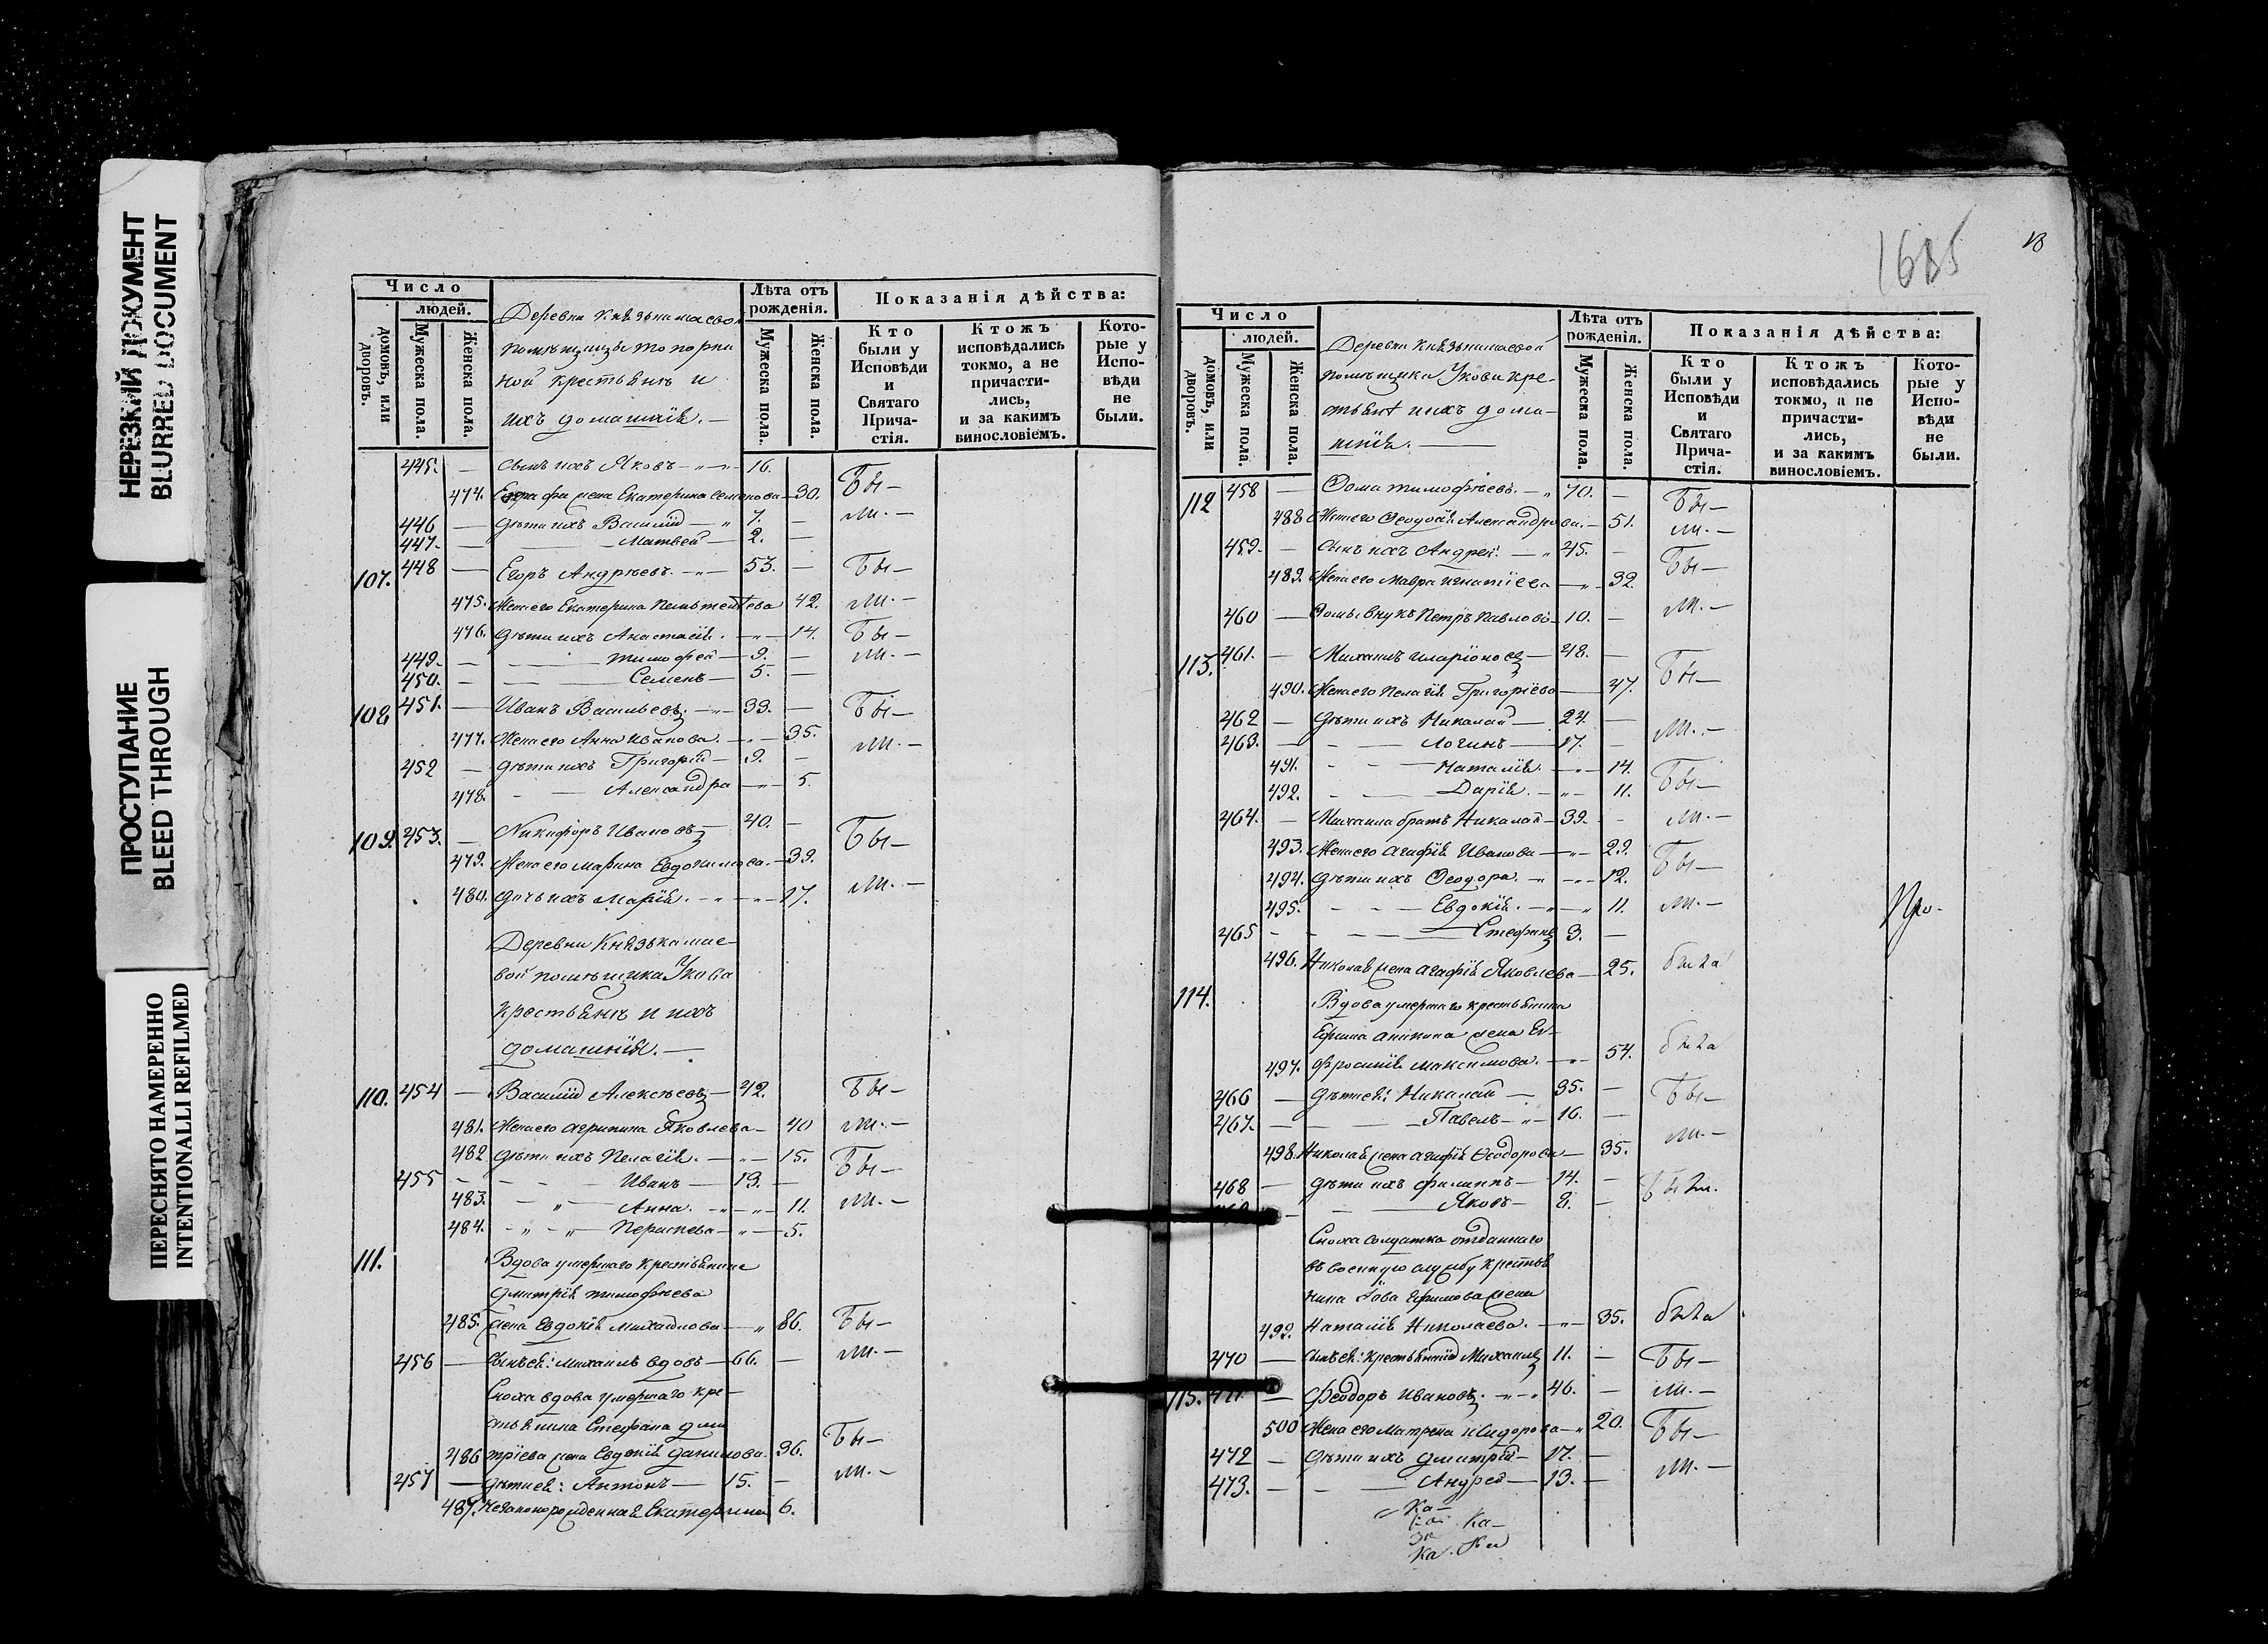 НЕРЕЗКИЙ ДОКУМЕНТ
BLURRED DOCUMENT
ПРОСТУПАНИЕ
BLEED THROUGH
ПЕРЕСНЯТО НАМЕРЕННО
INTENTIONALLI REFILMED
Число
людей.
домовъ, или дворовъ.
Мужеска пола.
Женска пола.
Деревни
помѣщицы Топорни
ной крестьянъ и
ихъ домашнія. —
Лѣта отъ рожденія.
Мужеска пола.
Женска пола.
Показанія дѣйства:
Кто были у Исповѣди и Святаго Прича- стія.
Ктожъ исповѣдались токмо, а не причасти- лись, и за какимъ винословіемъ.
Кото- рые у Испо- вѣди не были.
445. — сынъ ихъ Яковъ — 16.
474. жена Екатерина Семенова — 30. Бы —
446 — дѣти ихъ Василій — 7. — ли. —
447. — Матвей — 2. —
107. 448 — Егоръ Андреевъ. — 53. — Бы —
475. Жена его Екатерина 42. ли. —
476. дѣти ихъ Анастасія. — 14. Бы —
449. — Тимофей — 9. — ли. —
450. — Семенъ — 5. —
108 451. — Иванъ Васильевъ — 39. — Бы —
477. Жена его Анна Иванова. — 35. ли. —
452 — дѣти ихъ Григорій — 9. —
478. — Александра — 5.
109. 453. — Никифоръ Ивановъ — 40. — Бы —
479. Жена его Марина Евдокимова. — 39.
480. дочь ихъ Марія. — 17. ли. —
Деревни
вой помѣщика Укова
крестьянъ и ихъ
домашнія. —
110. 454 — Василій Алексѣевъ — 42. Бы —
481. Жена его Агрипина Яковлева — 40 ли. —
482 дѣти ихъ Пелагія. — 15. Бы —
455 — Иванъ — 13. —
483. — Анна. — 11. ли. —
484. — — 5.
111. Вдова умершаго крестьянина
Дмитрія Тимофѣева
485. жена Евдокія Михайлова — 86. Бы —
456 — Сынъ ея: Михаилъ вдовъ — 66. — ли. —
Сноха вдова умершаго кре-
стьянина Стефана Дми
486 тріева жена Евдокія Данилова. 36. Бы —
457 — дѣти ея: Антонъ — 15. — ли. —
487. незаконорожденная Екатерина 6.
1685
18
Число
людей.
домовъ, или дворовъ.
Мужеска пола.
Женска пола.
Деревни
помѣщика Укова кре-
стьянъ и ихъ дома-
шнія. —
Лѣта отъ рожденія.
Мужеска пола.
Женска пола.
Показанія дѣйства:
Кто были у Исповѣди и Святаго Прича- стія.
Ктожъ исповѣдались токмо, а не причасти- лись, и за какимъ винословіемъ.
Кото- рые у Испо- вѣди не были.
112 458 — Ѳома Тимофѣевъ. — 70. — Бы —
488 Жена его Ѳеодосія Александрова. — 51. ли. —
459. — Сынъ ихъ Андрей. — 45. — Бы —
489. Жена его Мавра Игнатіева — 32.
460 — Ѳомы внукъ Петръ Павловъ — 10. — ли. —
113. 461. — Михаилъ Иларіоновъ — 48. —
490. Жена его Пелагія Григоріева — 47. Бы —
462 — дѣти ихъ Николай — 24. —
463. — Логинъ — 17. — ли. —
491. — Наталія. — 14.
492. — Дарія. — 11. Бы —
464. — Михаила братъ Николай — 39. — ли. —
493. Жена его Агафія Иванова — 29.
494. дѣти ихъ Ѳеодора. — 12. Бы —
495. — Евдокія. — 11. ли. —
465 — Стефанъ 3. —
496. Николая жена Агафія Яковлева — 25. была
114. Вдова умершаго крестьянина
Ефима жена Ев-
497. фросинія Максимова. — 54. была
466 — дѣти ея: Николай — 35. — Бы —
467. — Павелъ — 16. —
498. Николая жена Агафія Ѳеодорова — 35. ли. —
468 — дѣти ихъ Филиппъ — 14. — Были.
— Яковъ — 8. —
Сноха солдатка отданнаго
въ военную службу крестья
нина Іова Ефимова жена
499. Наталія Николаева. — 35. была
470 — Сынъ ея: крестьянинъ Михаилъ 11. — Бы —
115. 471. — Феодоръ Ивановъ. — 46. — ли. —
500 Жена его Матрена Исидорова — 20. Бы —
472 — дѣти ихъ Дмитрій — 17. —
473. — Андрей — 13. — ли. —